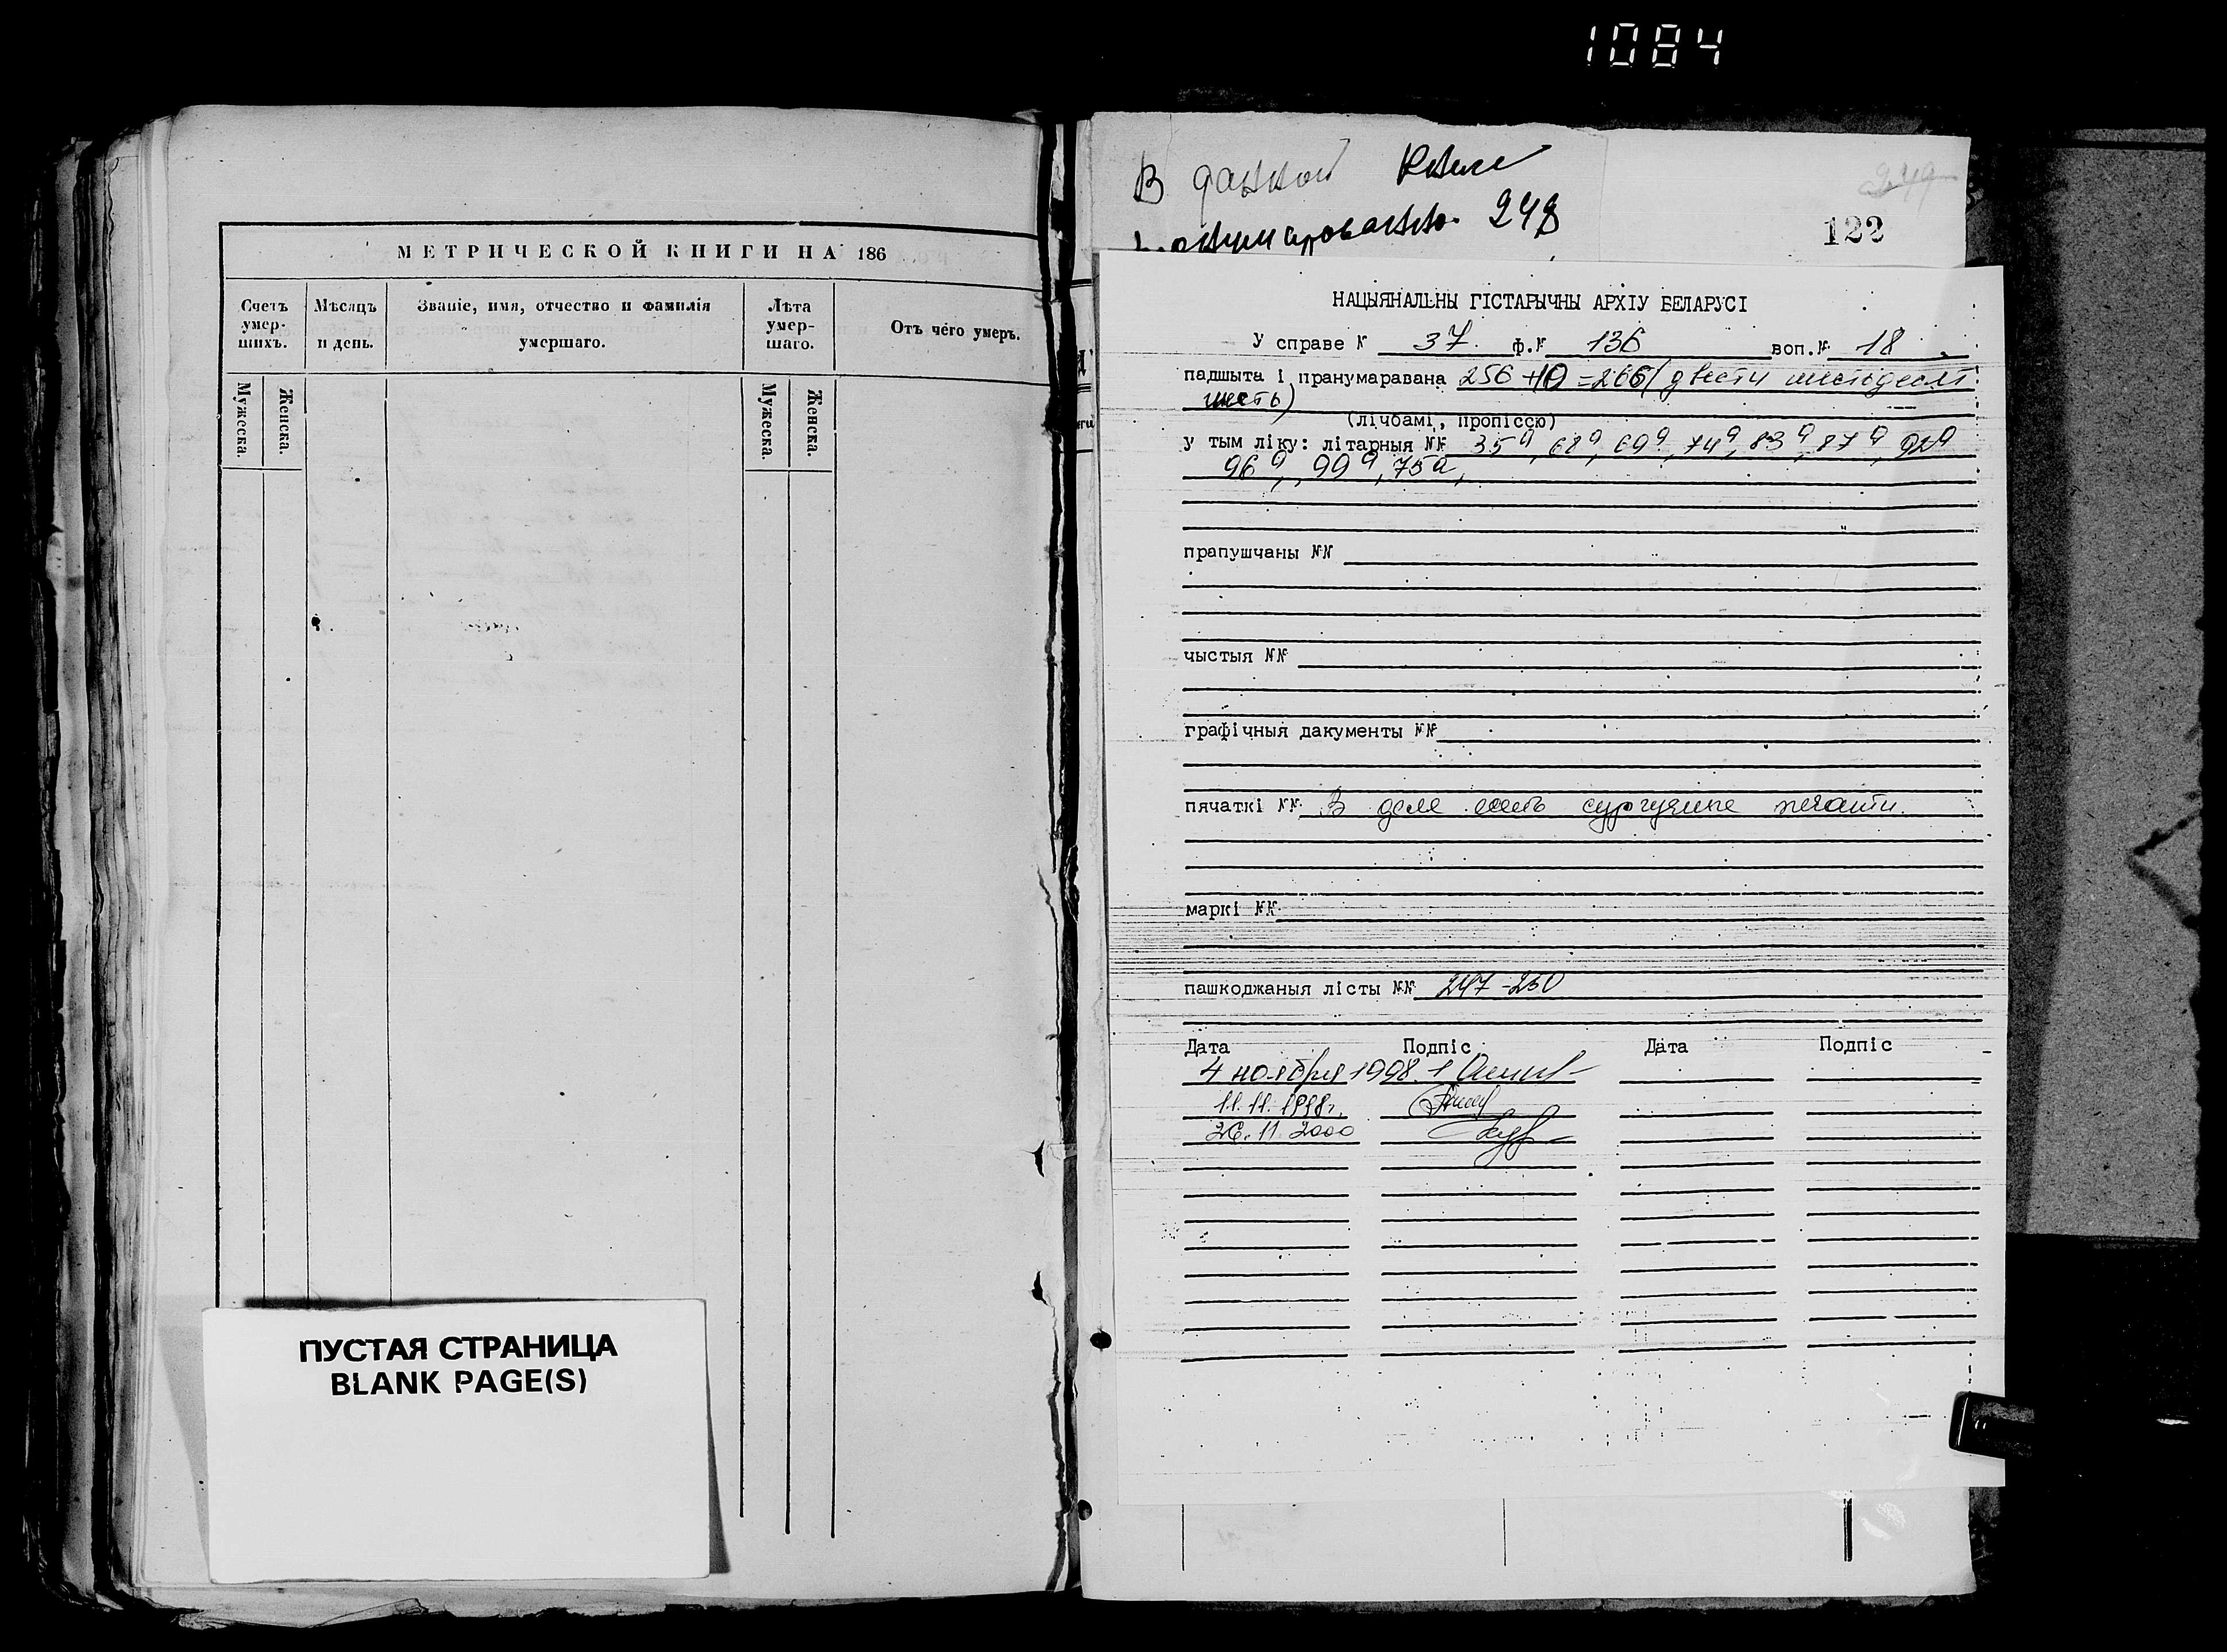 1084
МЕТРИЧЕСКОЙ КНИГИ НА 186
Счетъ умер- шихъ.
Мѣсяцъ и день.
Званіе, имя, отчество и фамилія умершаго.
Лѣта умер- шаго.
Отъ чего умеръ.
Мужеска.
Женска.
Мужеска.
Женска.
ПУСТАЯ СТРАНИЦА
BLANK PAGE(S)
В данной книге
пронумеровано 248
249
122
НАЦЫЯНАЛЬНЫ ГІСТАРЫЧНЫ АРХІУ БЕЛАРУСІ
У справе № 37. ф.№ 136 воп.№ 18
падшыта і пранумаравана 256+10=266 (двести шестьдесят
шесть)
(лічбамі, пропіссю)
у тым ліку: літарныя №№ 35а, 68а, 69а, 74а, 83а, 87а, 92а
96а, 99а, 75а,
прапушчаны №№
чыстыя №№
графічныя дакументы №№
пячаткі №№ В деле есть сургучные печати.
маркі №№
пашкоджаныя лісты №№ 247-250
Дата Подпіс Дата Подпіс
4 ноября 1998
11.11.1998г.
26.11.2000